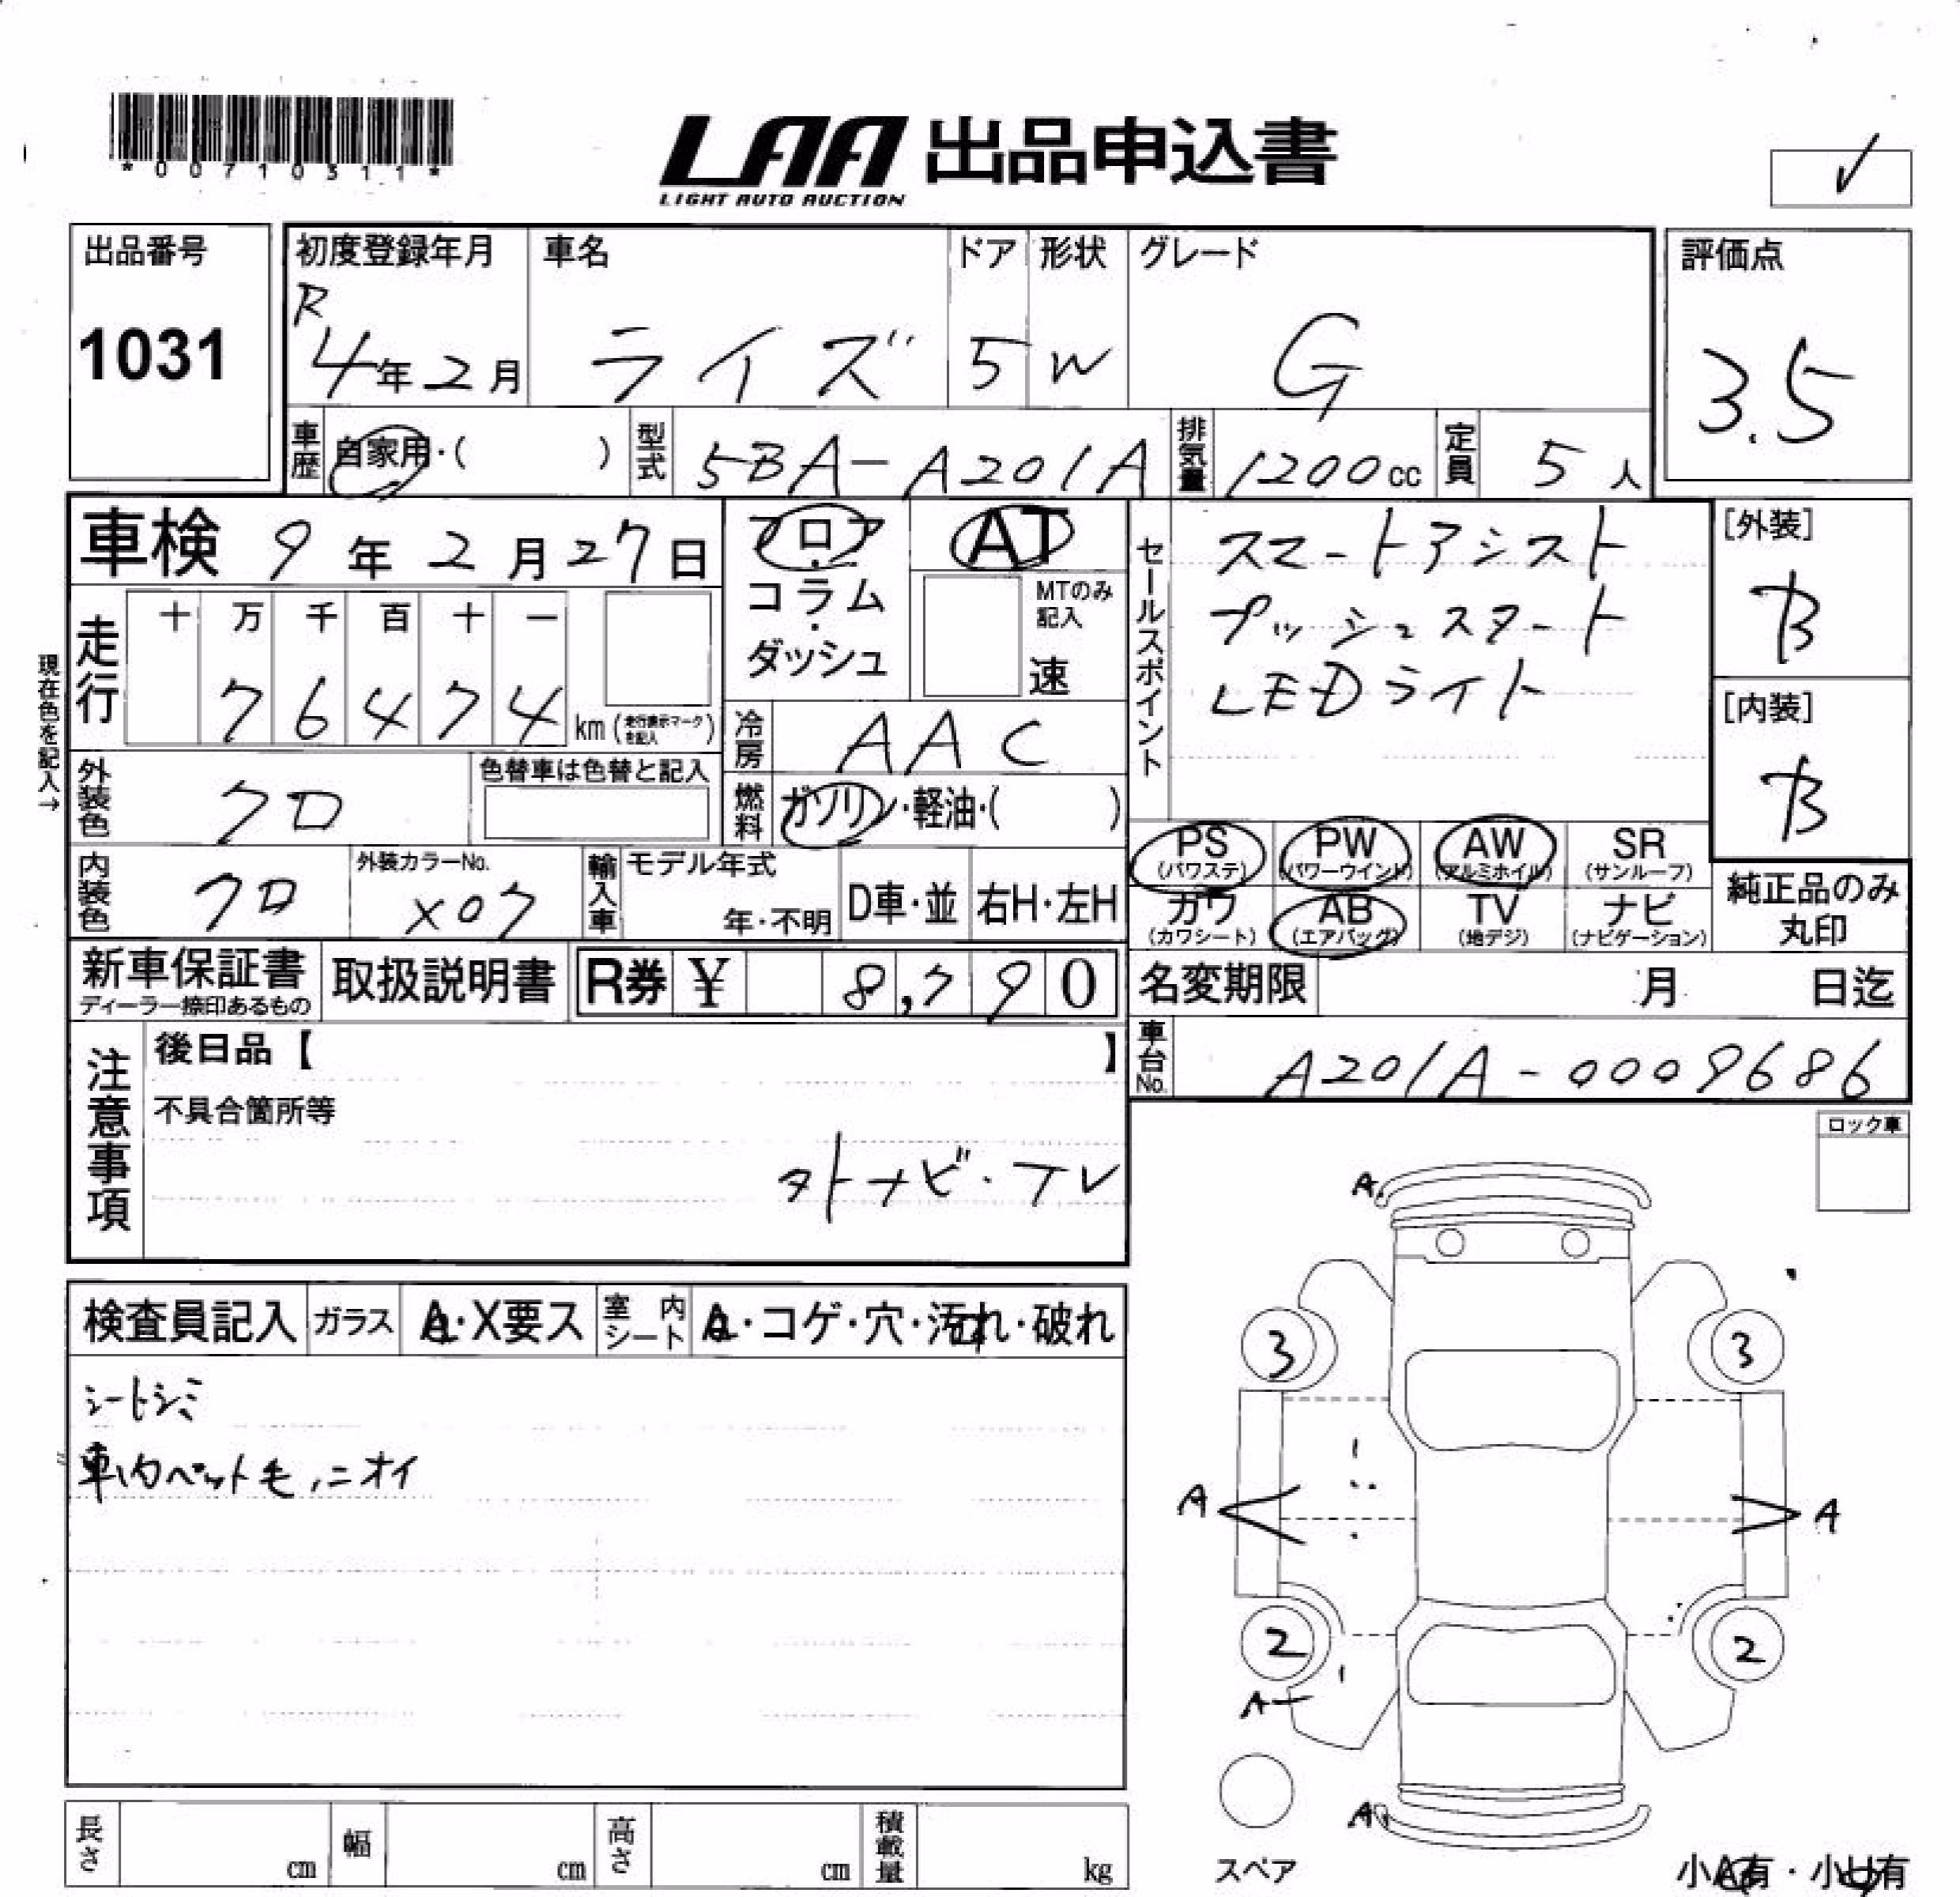 *00710311*
LAA 出品申込書
LIGHT AUTO AUCTION
✓
出品番号
1031
初度登録年月
R
4年2月
車名
ライズ
ドア
5
形状
W
グレード
G
評価点
3.5
車歴
自家用・( )
型式
5BA-A201A
排気量
1200cc
定員
5人
車検 9年2月27日
現在色を記入→
走行
十 万 千 百 十 一
7 6 4 7 4
km (走行表示マークを記入)
フロア
・
コラム
・
ダッシュ
AT
MTのみ
記入
速
冷房
AAC
燃料
ガソリン・軽油・( )
外装色
クロ
色替車は色替と記入
内装色
クロ
外装カラーNo.
X07
輸入車
モデル年式
年・不明
D車・並
右H・左H
セールスポイント
スマートアシスト
プッシュスタート
LEDライト
[外装]
B
[内装]
B
PS
(パワステ)
PW
(パワーウインド)
AW
(アルミホイル)
SR
(サンルーフ)
カワ
(カワシート)
AB
(エアバッグ)
TV
(地デジ)
ナビ
(ナビゲーション)
純正品のみ
丸印
新車保証書
ディーラー捺印あるもの
取扱説明書
R券 ¥ 8,790
名変期限 月 日迄
車台No.
A201A-0009686
注意事項
後日品【 】
不具合箇所等
外ナビ・TV
ロック車
検査員記入
ガラス
A・X要ス
室内
シート
A・コゲ・穴・汚れ・破れ
シートシミ
車内ペット毛,ニオイ
A
3
3
A
A
2
2
A
A
スペア
小A有・小U有
長さ
cm
幅
cm
高さ
cm
積載量
kg